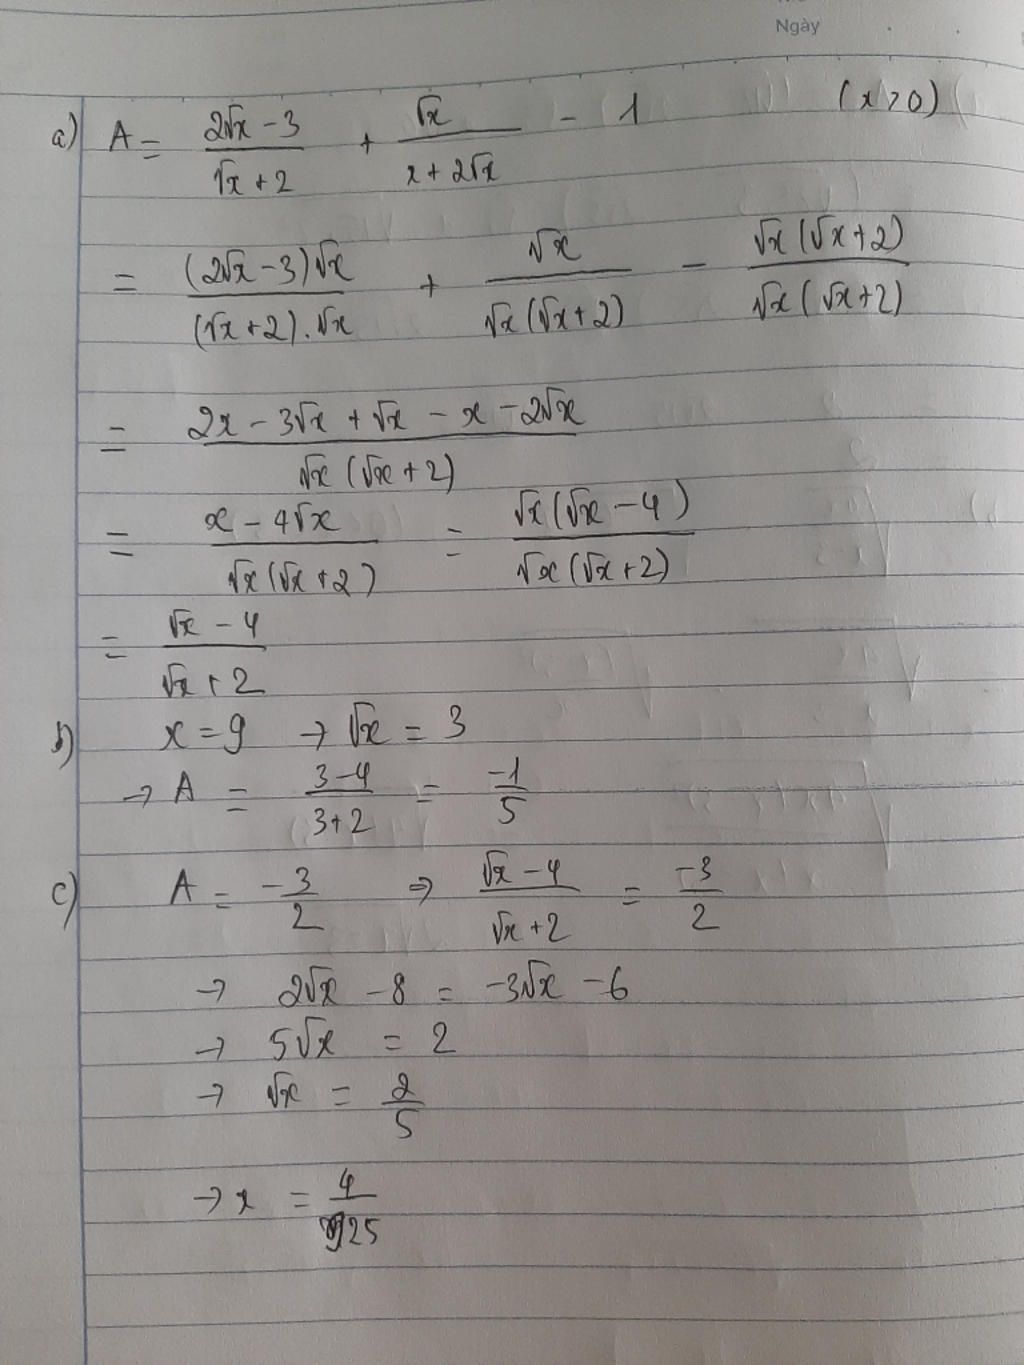 Ngày
a) A = \frac{2\sqrt{x} - 3}{\sqrt{x} + 2} + \frac{\sqrt{x}}{x + 2\sqrt{x}} - 1 (x > 0)
= \frac{(2\sqrt{x} - 3)\sqrt{x}}{(\sqrt{x} + 2).\sqrt{x}} + \frac{\sqrt{x}}{\sqrt{x}(\sqrt{x} + 2)} - \frac{\sqrt{x}(\sqrt{x} + 2)}{\sqrt{x}(\sqrt{x} + 2)}
= \frac{2x - 3\sqrt{x} + \sqrt{x} - x - 2\sqrt{x}}{\sqrt{x}(\sqrt{x} + 2)}
= \frac{x - 4\sqrt{x}}{\sqrt{x}(\sqrt{x} + 2)} = \frac{\sqrt{x}(\sqrt{x} - 4)}{\sqrt{x}(\sqrt{x} + 2)}
= \frac{\sqrt{x} - 4}{\sqrt{x} + 2}
b) x = 9 → \sqrt{x} = 3
→ A = \frac{3 - 4}{3 + 2} = \frac{-1}{5}
c) A = -\frac{3}{2} ⇒ \frac{\sqrt{x} - 4}{\sqrt{x} + 2} = \frac{-3}{2}
→ 2\sqrt{x} - 8 = -3\sqrt{x} - 6
→ 5\sqrt{x} = 2
→ \sqrt{x} = \frac{2}{5}
→ x = \frac{4}{25}